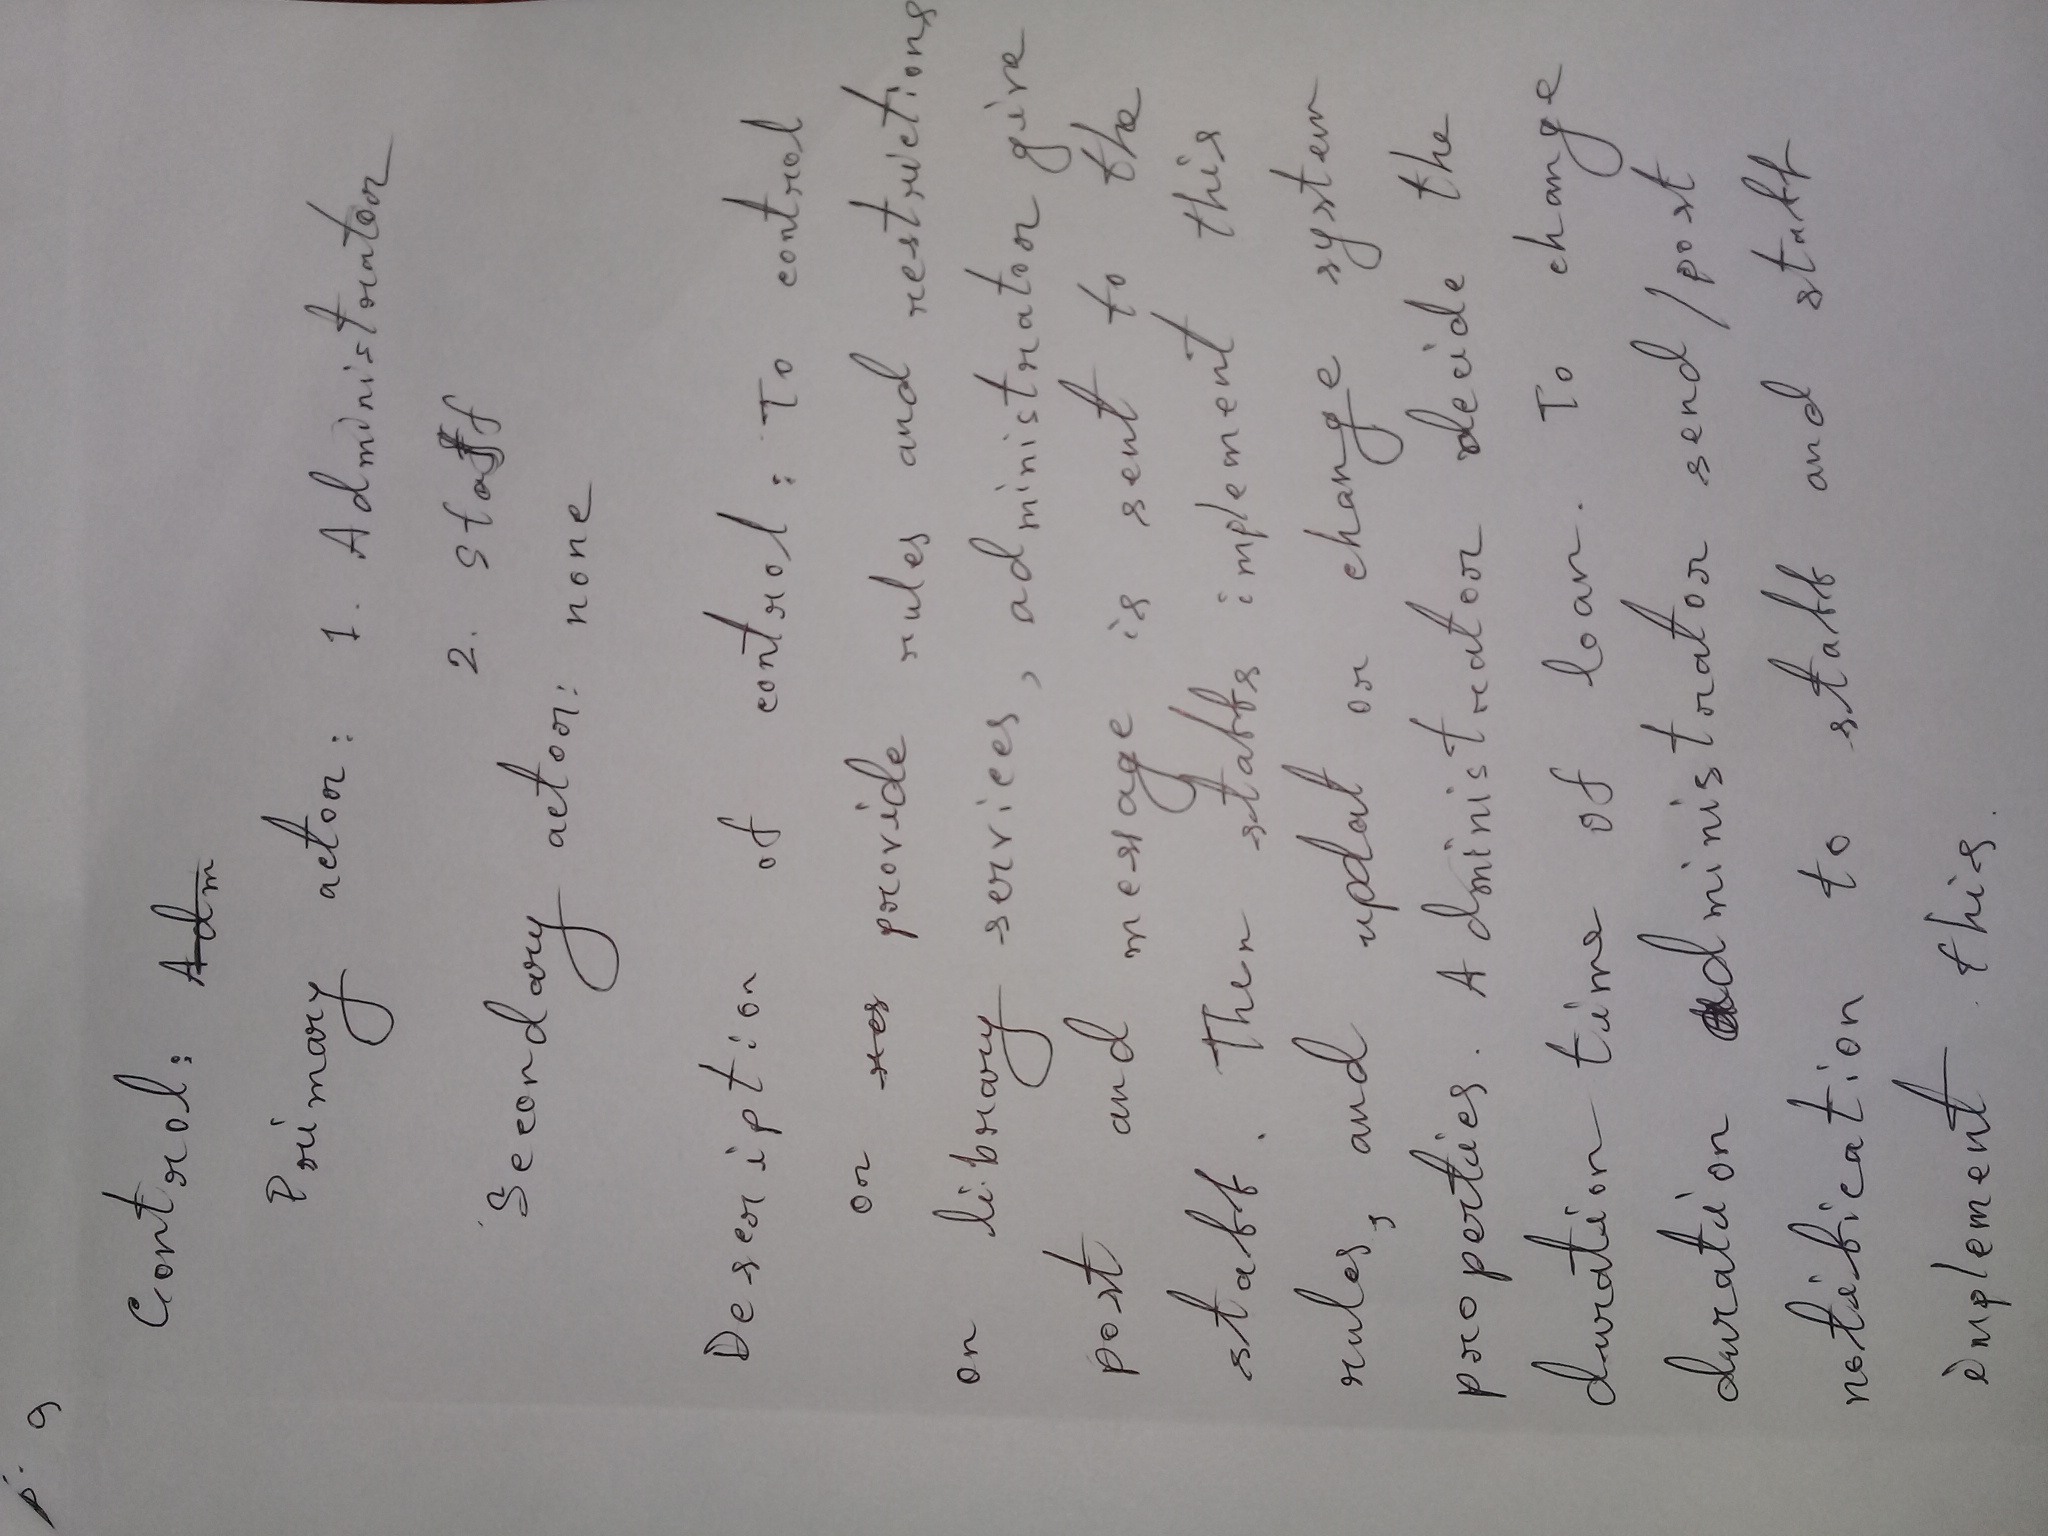 p. 9
Control: Adm
Primary actor: 1. Administrator
2. staff
Secondary actor: none
Description of control: To control
or res provide rules and restrictions
on library services, administrator give
post and message is sent to the
staff. Then staffs implement this
rules, and updat or change system
properties. Administrator decide the
duration time of loan. To change
duration administrator send/post
notification to staff and staff
implement this.